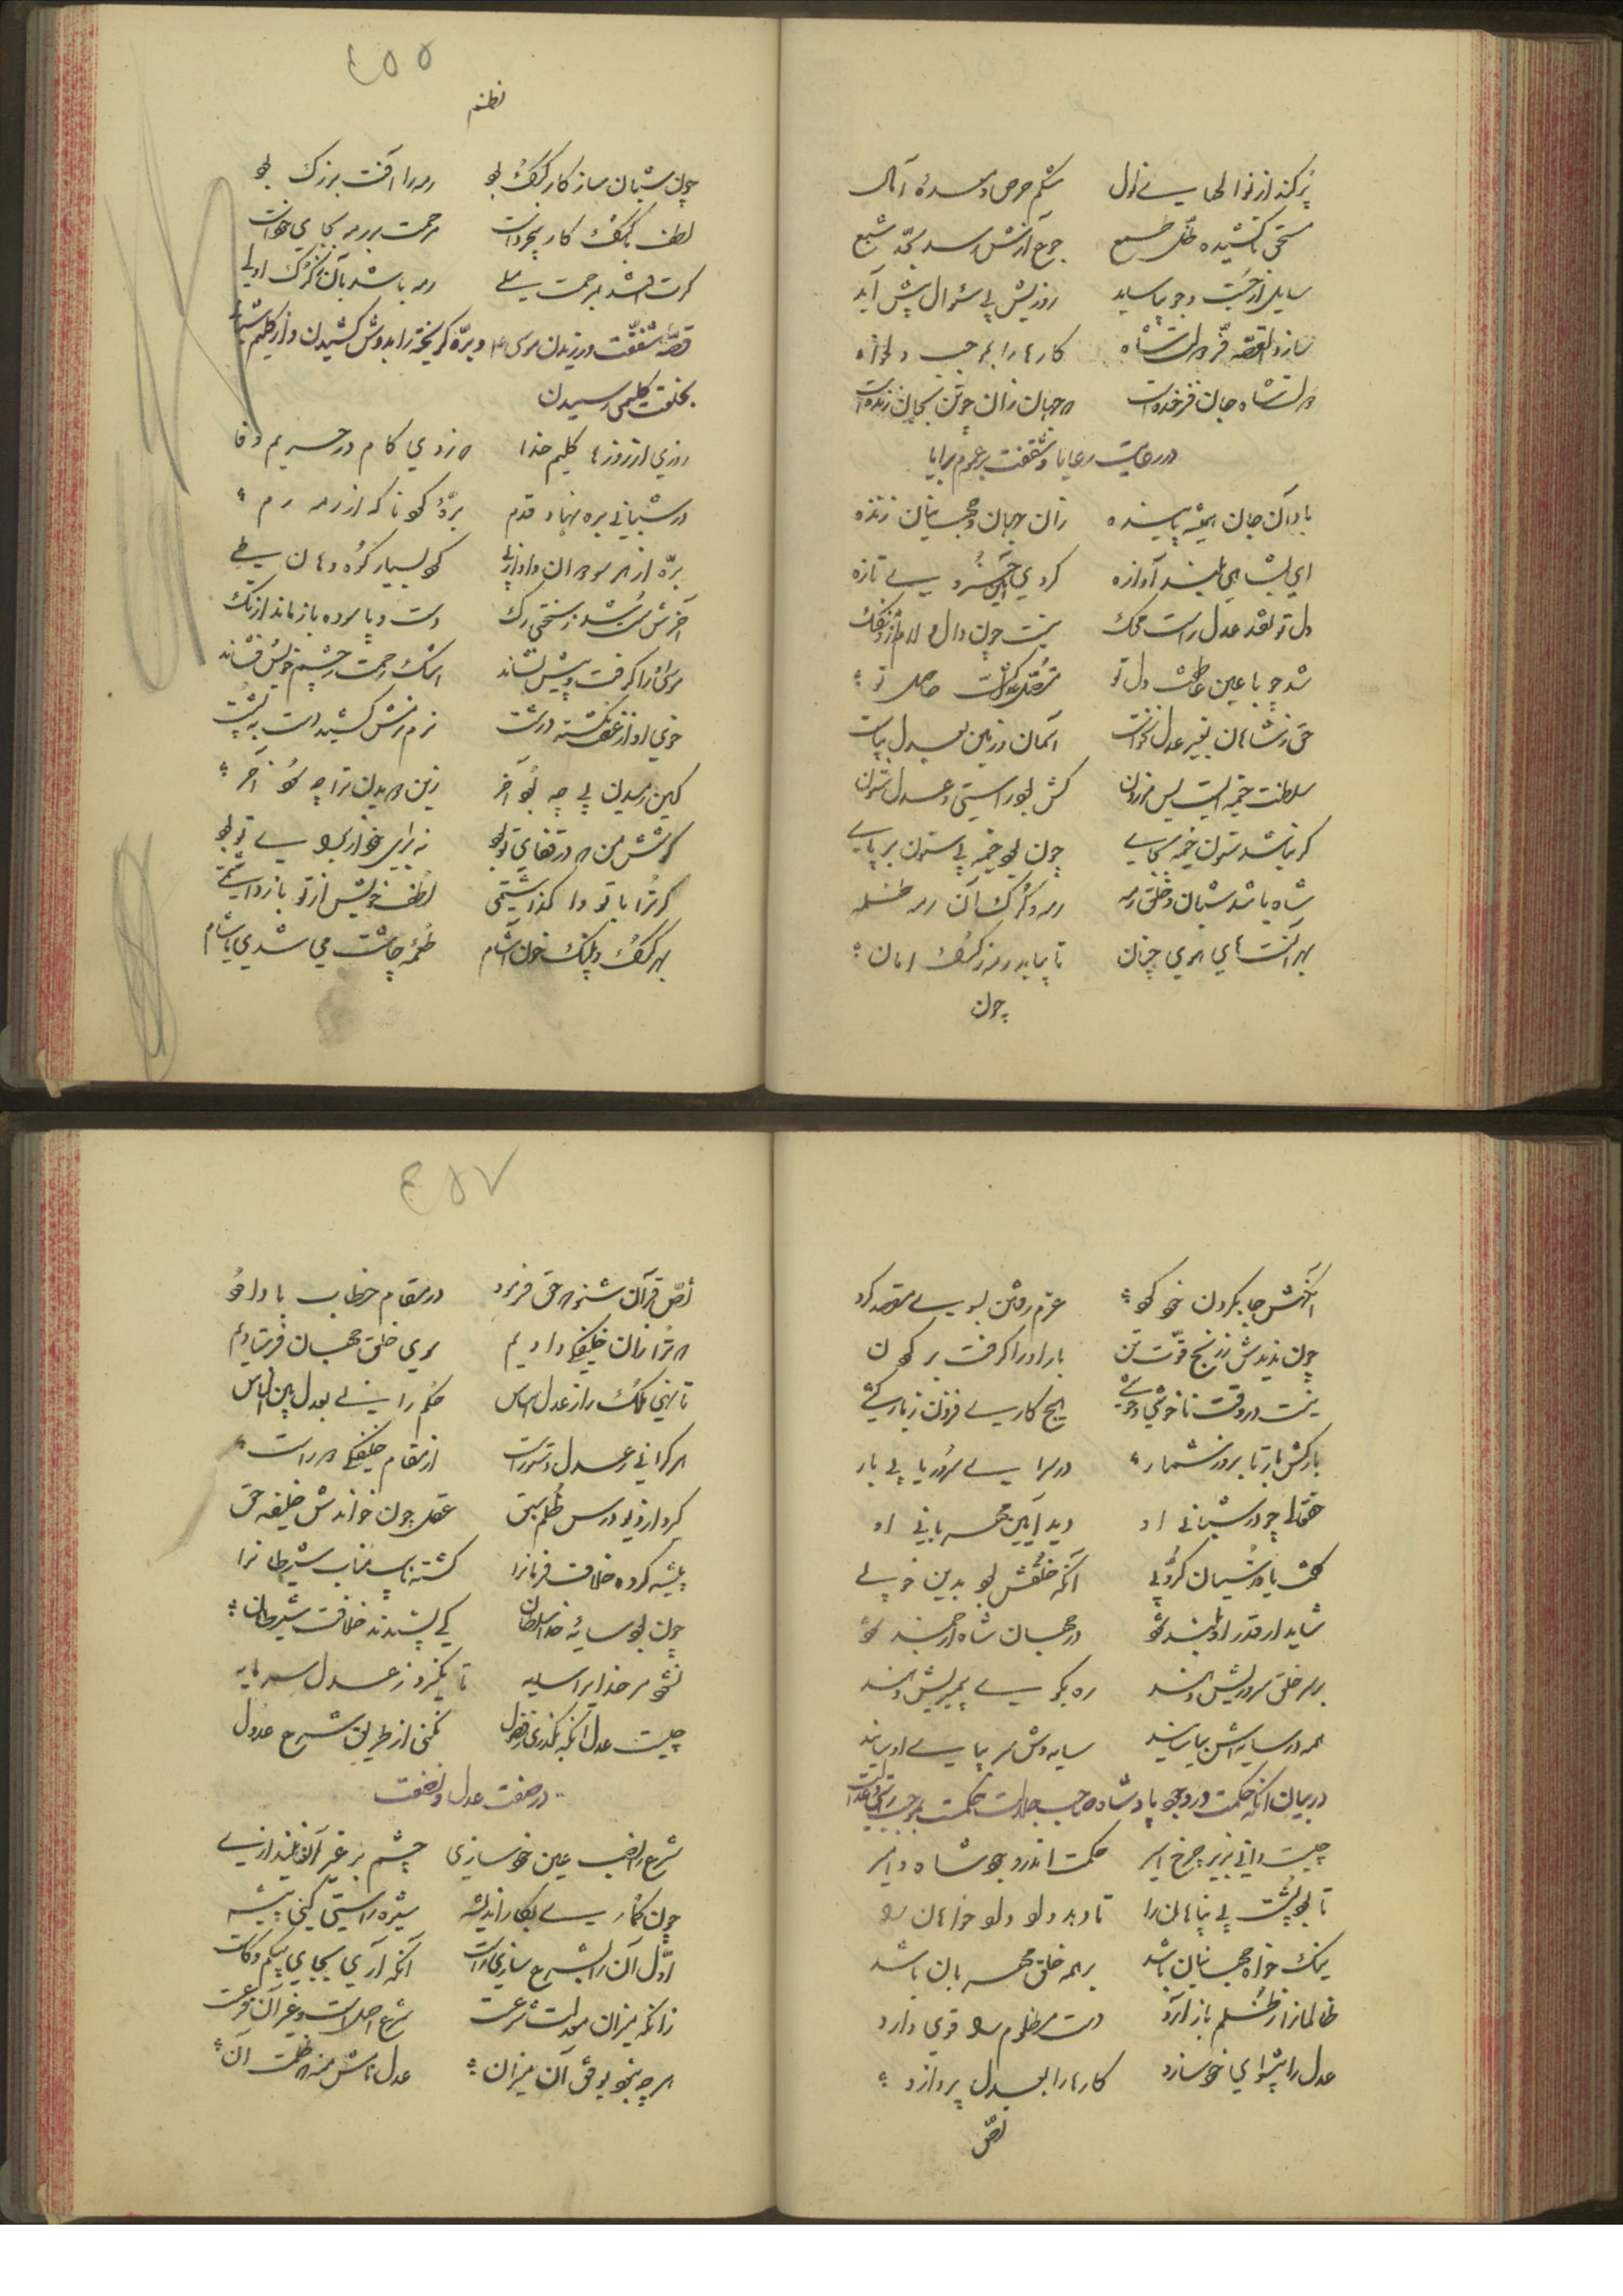 پر کند از نوالهای نوال شکم حرص و معدهٔ آمال
جوع آزش رسد بحد شبع
سایل ار جست و جو بیاساید روزیش بی سئوال پیش آید
سازد القصه فر دولت شاه کارها را بموجب دلخواه
دولت شاه جان فرخنده است که جهان زان چو تن بجان زنده است
در رعایت رعایا و شفقت بر عموم برایا
باد آن جان همیشه پاینده زان جهان و جهانیان زنده
ای بشاهی بلند آوازه کردی
دل تو نقد عدل راست محک نیست چون دال و لام ازو منفک
شد چو با عین عاطفت دل تو
حق ز شاهان بغیر عدل نخواست آسمان و زمین بعدل بپاست
سلطنت خیمه ایست بس موزون کش بود راستی و عدل ستون
گر نباشد ستون خیمه بجای چون بود خیمه بی ستون بر پای
شاه باشد شبان و خلق رمه رمه و گرگ آن رمه ظلمه
بهر آنست های هوی چنان تا بیابد رمه ز گرگ امان
چون
٤٥٥
نظم
چون شبان سازگار گرگ بود رمه را آفت بزرگ بود
لطف با گرگ کار بیخردانست مرحمت بر رمه بجای خود است
رمه باشد بآن ز گرگ اولی
قصه شفقت ورزیدن موسی ع و بره گریخته را بدوش کشیدن و از گلیم شبانی
بخلعت کلیمی رسیدن
روزی از روزها کلیم خدا که زدی گام در حریم وفا
در شبانی بره نهاد قدم بره کو ناگه از رمه رم
بره از هر سو دوان و او از پی کو بسیار کوه و هامون طی
آخرش سست شد ز سختی رگ دست و پا سوده باز ماند از تگ
موسی او را گرفت و پیش نشاند اشک رحمت ز چشم خویش فشاند
خوی او از غضب نگشته درشت نرم نرمش کشید دست به پشت
کین رمیدن پی چه بود آخر زین دویدن ترا چه سود آخر
کوشش من که در قفای تو بود نه برای خود از برای تو بود
گر ترا با تو وا گذاشتمی لطف خویش از تو باز داشتمی
بهر گرگ و پلنگ خون آشام طعمه چاشت می شدی یا شام
آنگهش جا بگردن خود کرد عزم رفتن بسوی مقصد کرد
چون ندیدش ز رنج قوت تن بار او را گرفت بر گردن
نیست در وقت ناخوشی و خوشی هیچ کاری فزون ز بارکشی
بار کش بار تا بروز شمار در سرای سرور یابی بار
حقتعالی چو در شبانی او دید آیین مهربانی او
گفت با قدسیان کروبی آنکه خلقش بود بدین خوبی
شاید ار قدر او بلند شود در جهان شاه ارجمند شود
بر سر خلق سروریش دهند ره بکوی پیمبریش دهند
همه در سایه اش بیاسایند سایه وش سر بپای او سایند
در بیان آنکه حکمت در وجود پادشاه صاحب جلالت حکمت بموجب راستی و عدالت
چیست دانی بزیر چرخ اثیر حکمت اندر وجود شاه و امیر
تا بود پشت بی پناهان را تا دهد داد داد خواهان را
نیک خواه جهانیان باشد بر همه خلق مهربان باشد
ظالمانرا ز ظلم باز آرد دست مظلوم را قوی دارد
عدل را پیشوای خود سازد کارها را بعدل پردازد
نص
٤٥٧
نص قرآن شنو که حق فرمود در مقام خطاب با داود
که ترا زان خلیفگی دادیم سوی خلق جهان فرستادیم
تا نهی ملک را ز عدل اساس حکم رانی بعدل بین الناس
هر کرا نی ز عدل دستورست از مقام خلیفگی دورست
گیرد از دیو درس ظلم سبق عقل چون خواندش خلیفه حق
پیشه کرده خلاف فرمانرا گشته نایب مناب شیطانرا
چون بود سایهٔ خدا سلطان کی پسندند خلافت شیطان
نشود مر خدایرا سایه تا نگیرد ز عدل سرمایه
چیست عدل آنکه بگذری ز فضول نکنی از طریق شرع عدول
در صفت عدل و نصفت
شرع را نصب عین خود سازی چشم بر غیر آن نیندازی
چون گماری بکار اندیشه سیرهٔ راستی کنی پیشه
اول آن را بشرع سازی راست آنکه آری بجای بی کم و کاست
زانکه میزان معدلت شرعست شرع اصلست و غیر آن فرعست
هر چه نبود بوفق آن میزان عدل نامش منه که ظلمست آن